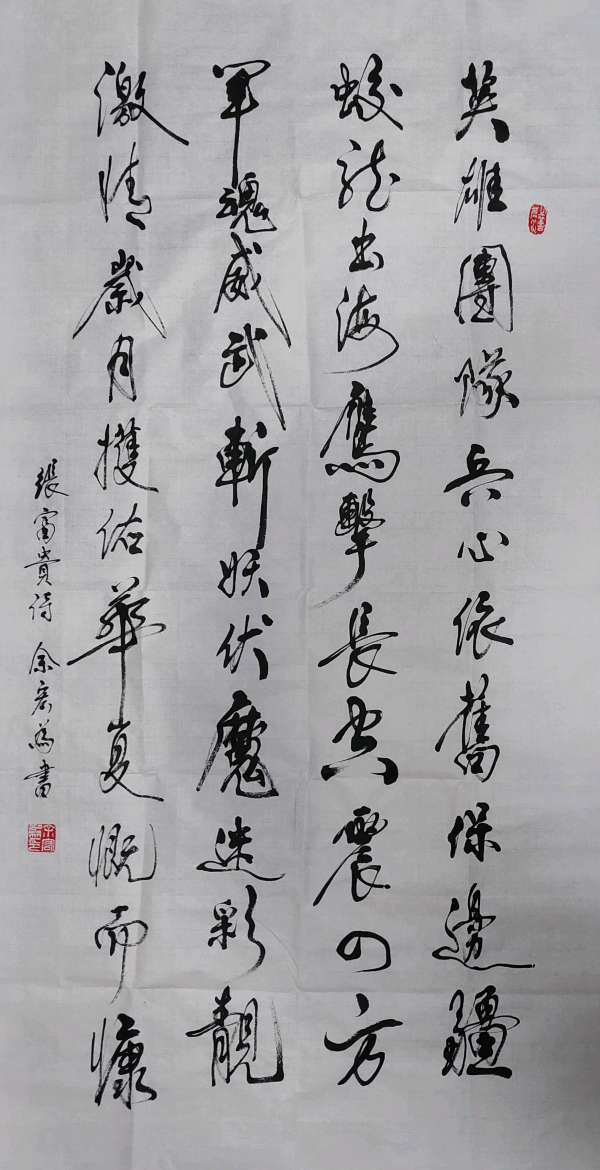 英雄團隊兵心依舊保邊疆
蛟龍出海鷹擊長空震四方
軍魂威武斬妖伏魔迷彩靚
激情歲月擭佑華夏慨而慷
張富貴詩 余宏為書